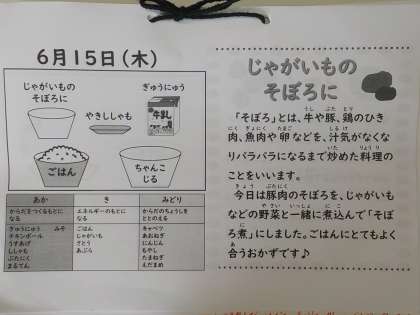 6月15日(木)
じゃがいもの
そぼろに
やきししゃも
ぎゅうにゅう
牛乳
ごはん
ちゃんこ
じる
あか
き
みどり
からだをつくるもとに
なる
エネルギーのもとに
なる
からだのちょうしを
ととのえる
ぎゅうにゅう みそ
チキンボール
うすあげ
ししゃも
ぶたにく
まるてん
ごはん
じゃがいも
さとう
あぶら
キャベツ
あおねぎ
にんじん
もやし
たまねぎ
えだまめ
じゃがいもの
そぼろに
「そぼろ」とは、牛や豚、鶏のひき
肉、魚肉や卵などを、汁気がなくな
りパラパラになるまで炒めた料理の
ことをいいます。
今日は豚肉のそぼろを、じゃがいも
などの野菜と一緒に煮込んで「そぼ
ろ煮」にしました。ごはんにとてもよく
合うおかずです♪